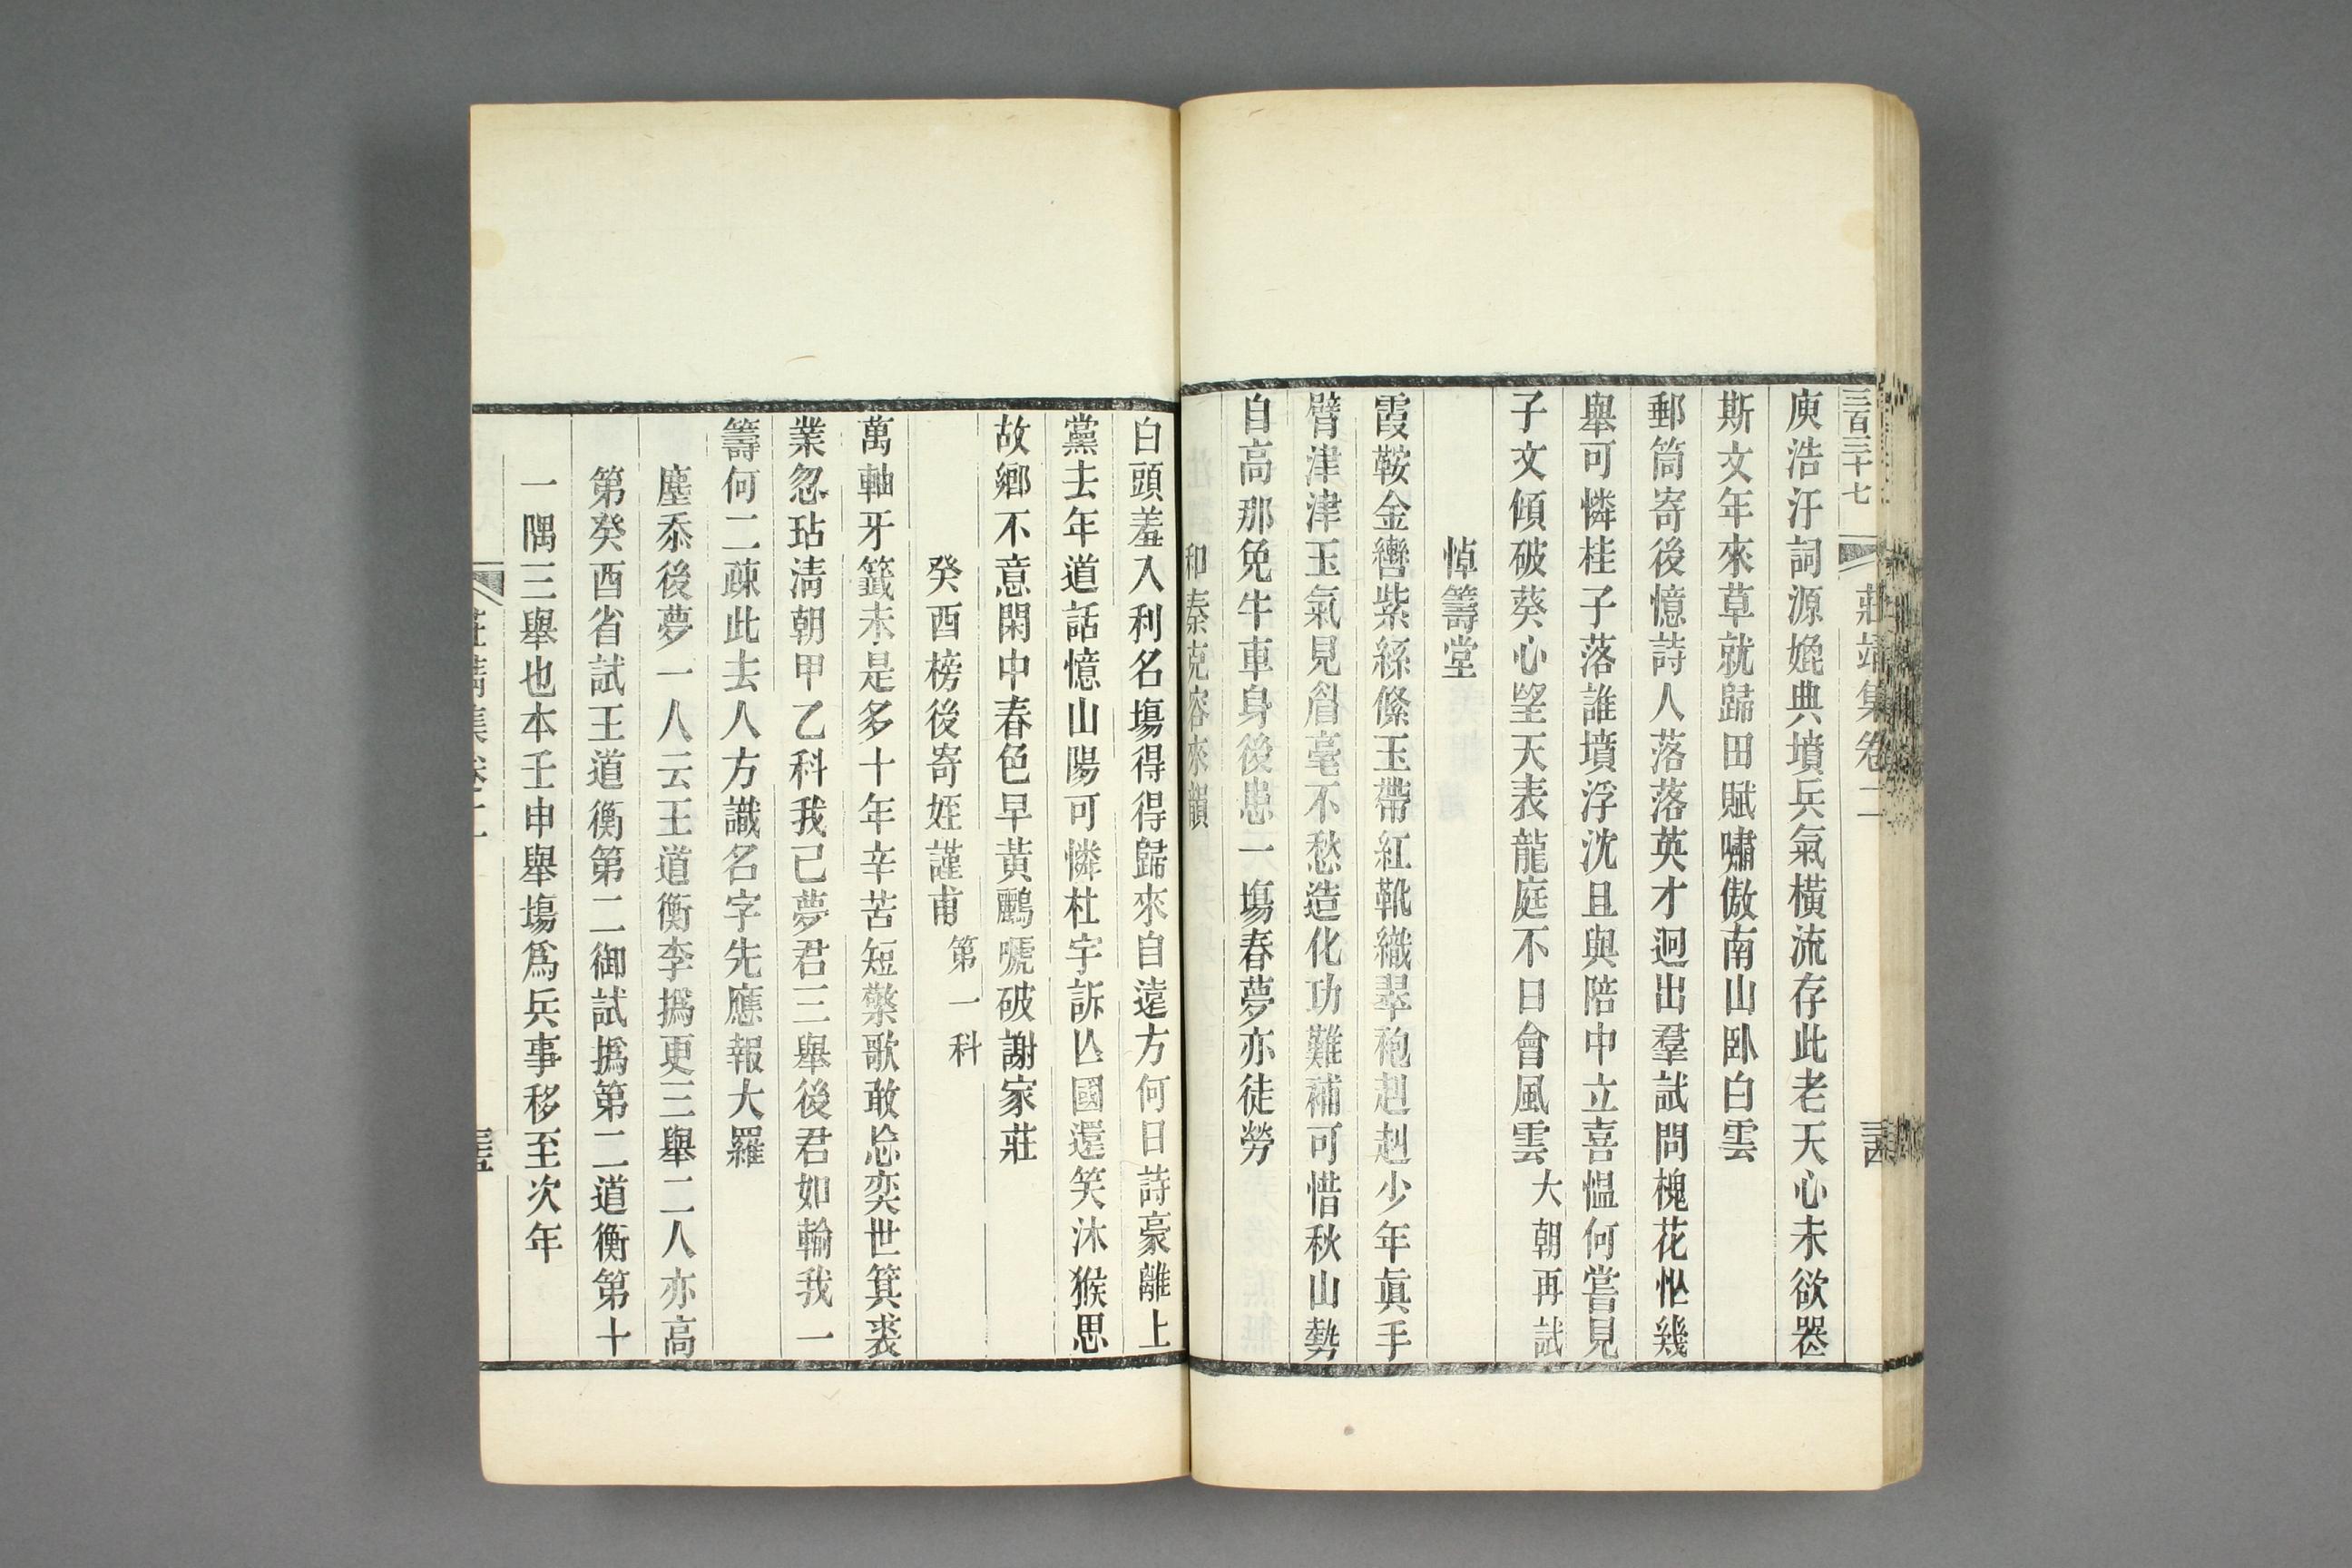 三百三十七
莊靖集卷二
庾浩汙詞源媲典墳兵氣橫流存此老天心未欲喪
斯文年來草就歸田賦嘯傲南山臥白雲
郵筒寄後憶詩人落落英才迥出羣試問槐花忙幾
舉可憐桂子落誰墳浮沈且與陪中立喜愠何嘗見
子文傾破葵心望天表龍庭不日會風雲大朝再試
悼籌堂
霞鞍金轡紫絲絛玉帶紅靴織翠袍赳赳少年眞手
臂津津玉氣見眉毫不愁造化功難補可惜秋山勢
自高那免牛車身後患一場春夢亦徒勞
和秦克容來韻
白頭羞入利名塲得得歸來自遠方何日詩豪離上
黨去年道話憶山陽可憐杜宇訴亾國還笑沐猴思
故鄉不意閑中春色早黃鸝嗁破謝家莊
癸酉榜後寄姪謹甫第一科
萬軸牙籤未是多十年辛苦短檠歌敢忘奕世箕裘
業忽玷淸朝甲乙科我已夢君三舉後君如輸我一
籌何二疎此去人方識名字先應報大羅
塵忝後夢一人云王道衡李撝更三舉二人亦高
第癸酉省試王道衡第二御試撝第二道衡第十
一隅三舉也本壬申舉塲爲兵事移至次年
莊靖集卷二